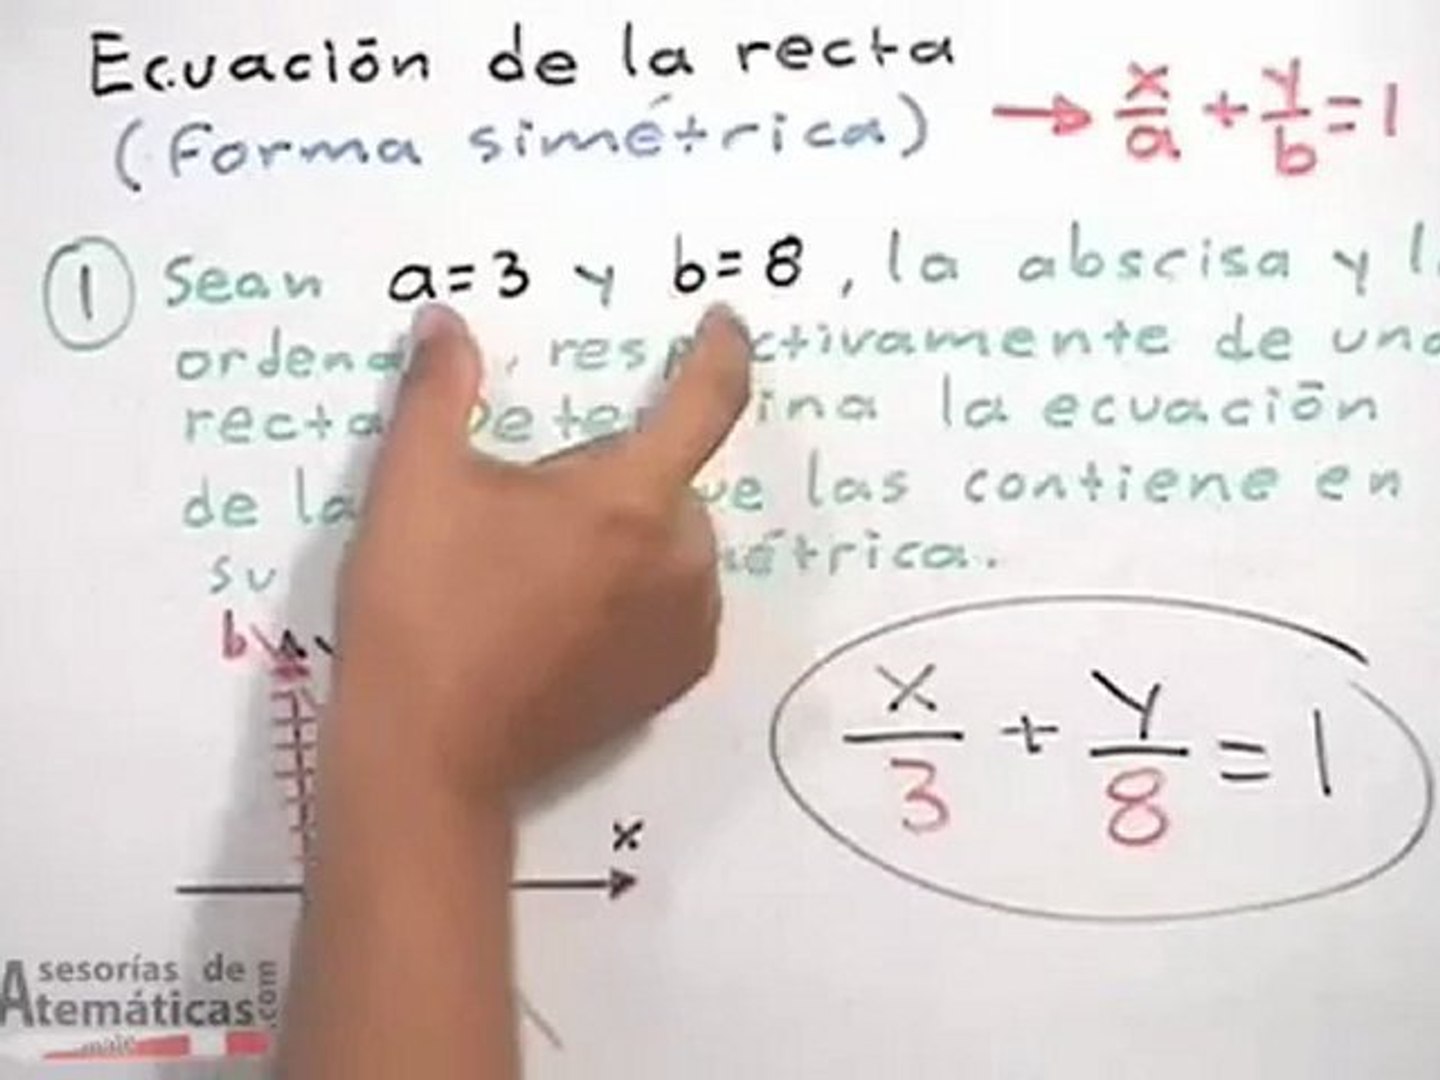 Ecuación de la recta
(forma simétrica) → x/a + y/b = 1
① Sean a=3 y b=8, la abscisa y
respectivamente de
recta la ecuación
de las contiene en
su
b
x/3 + y/8 = 1
x
Asesorías de
Atemáticas.com